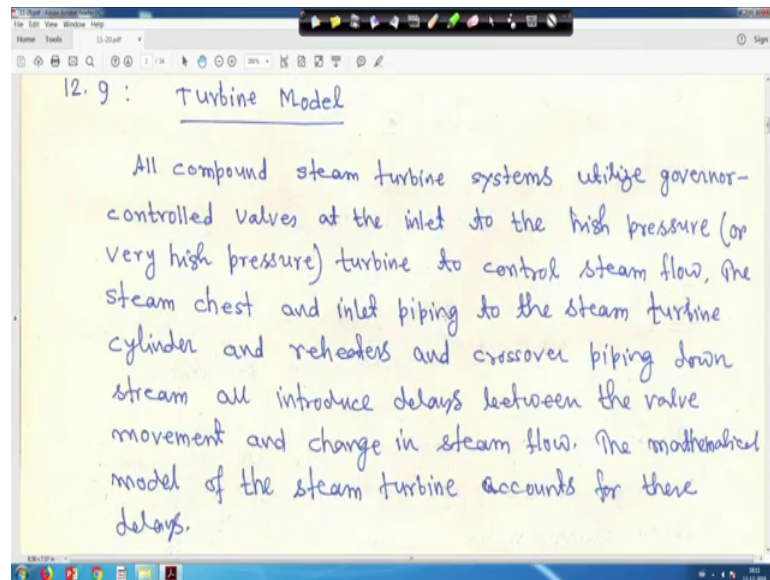 11-20.pdf - Adobe Acrobat Reader DC
File Edit View Window Help
Home Tools 11-20.pdf × Sign
1 / 14 200%
12.9 : Turbine Model
All compound steam turbine systems utilize governor-
controlled valves at the inlet to the high pressure (or
very high pressure) turbine to control steam flow. The
steam chest and inlet piping to the steam turbine
cylinder and reheaters and crossover piping down
stream all introduce delays between the valve
movement and change in steam flow. The mathematical
model of the steam turbine accounts for these
delays.